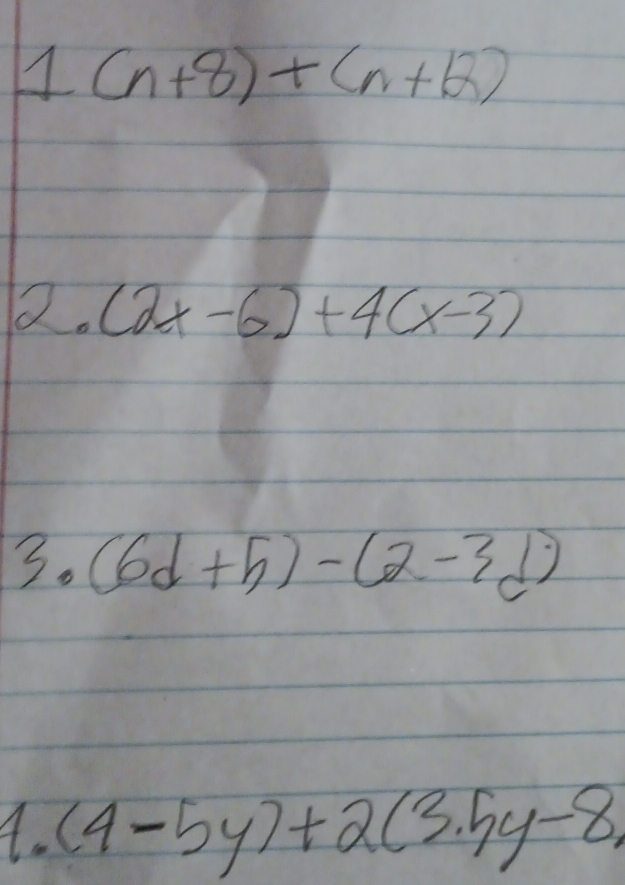 1 (n+8)+(n+12)
2. (2x-6)+4(x-3)
3. (6d+5)-(2-3d)
4. (4-5y)+2(3.5y-8